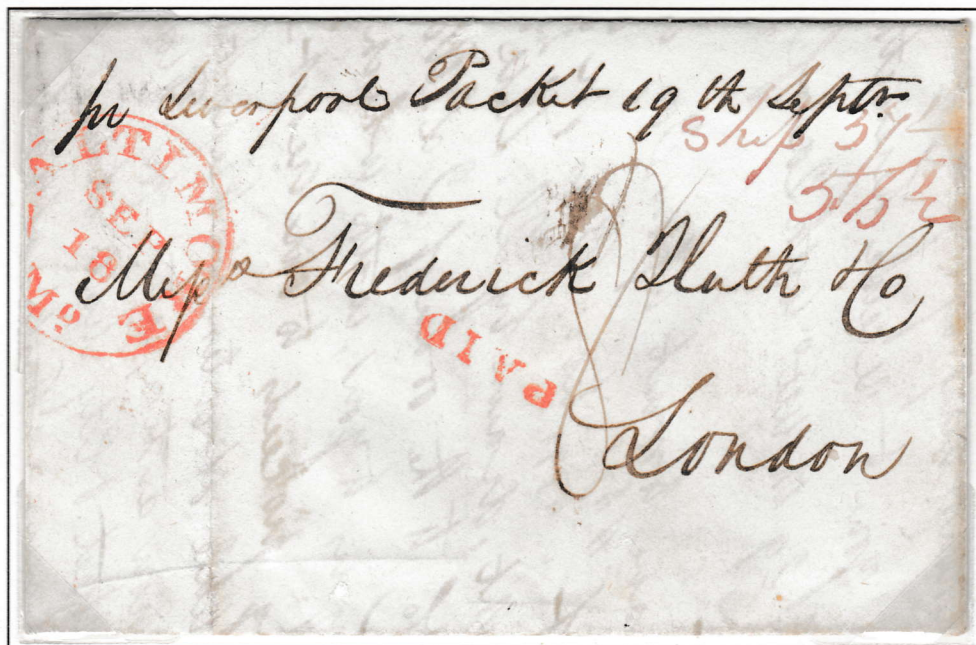 pr Liverpool Packet 19th Septr.
Ship 37½
5.6½
BALTIMORE Md.
SEP
18
Messrs Frederick Huth & Co
PAID
8
London